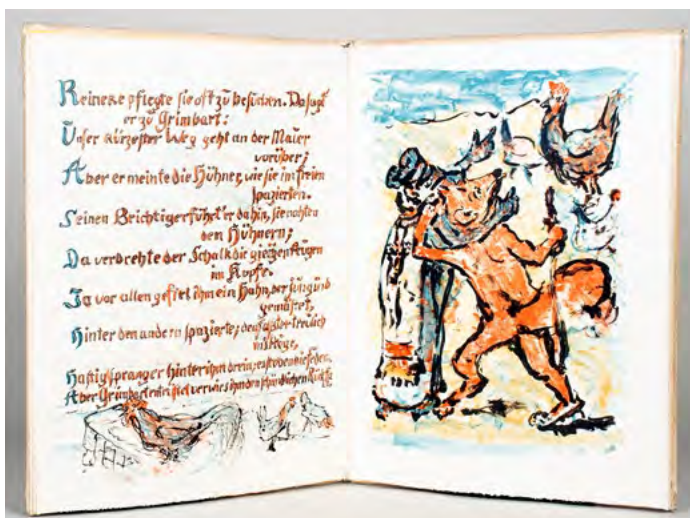 Reineke pflegte sie oft zu besuchen. Da sagt
er zu Grimbart:
Unser kürzester Weg geht an der Mauer
vorüber;
Aber er meinte die Hühner, wie sie im freien
spazierten.
Seinen Beichtiger führt er dahin, sie nahten
den Hühnern;
Da verdrehte der Schalk die gierigen Augen
im Kopfe.
Ja vor allen gefiel ihm ein Hahn, der jung und
gemästet,
Hinter den andern spazierte; den faßt er treulich
ins Auge,
Hastig sprang er hinter ihm drein; es stoben die Federn.
Aber Grimbart entrüstet verwies ihm den schändlichen